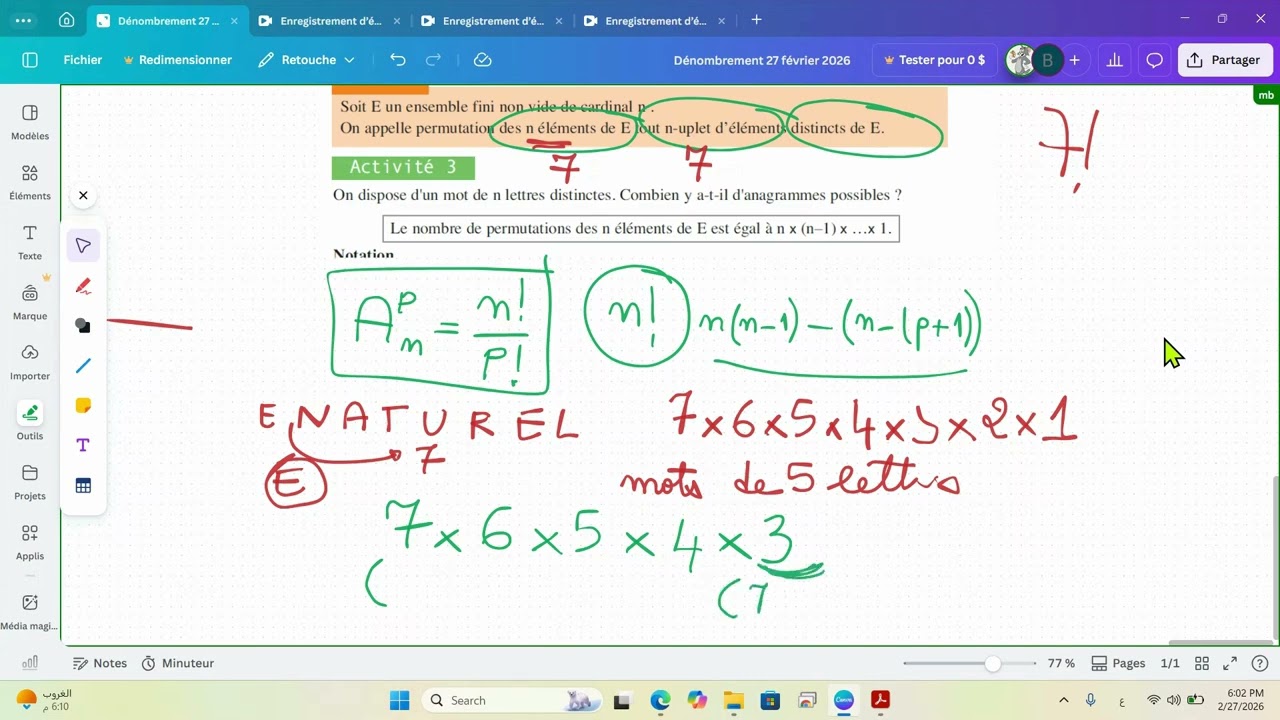 Dénombrement 27 ...
Enregistrement d'é...
Enregistrement d'é...
Enregistrement d'é...
Fichier
Redimensionner
Retouche
Dénombrement 27 février 2026
B
Tester pour 0 $
Partager
mb
Modèles
Éléments
Texte
Marque
Importer
Outils
Projets
Applis
Média magi...
Soit E un ensemble fini non vide de cardinal n .
On appelle permutation des n éléments de E tout n-uplet d'éléments distincts de E.
7 7
7!
Activité 3
On dispose d'un mot de n lettres distinctes. Combien y a-t-il d'anagrammes possibles ?
Le nombre de permutations des n éléments de E est égal à n x (n–1) x ...x 1.
Notation
A_n^p = n!/p! n! n(n-1) – (n-(p+1))
E, NATUREL 7×6×5×4×3×2×1
E 7 mots de 5 lettres
7 × 6 × 5 × 4 × 3
( (7
Notes
Minuteur
77 %
Pages
1/1
الغروب
6:10 م
Search
ع
6:02 PM
2/27/2026